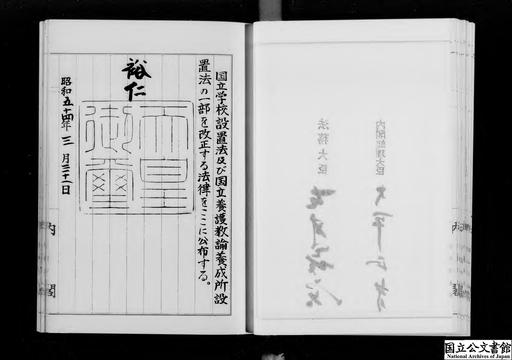 国立学校設置法及び国立養護教諭養成所設
置法の一部を改正する法律をここに公布する。
裕仁
天皇
御璽
昭和五十四年三月三十一日
内閣
内閣総理大臣
法務大臣
国立公文書館
National Archives of Japan